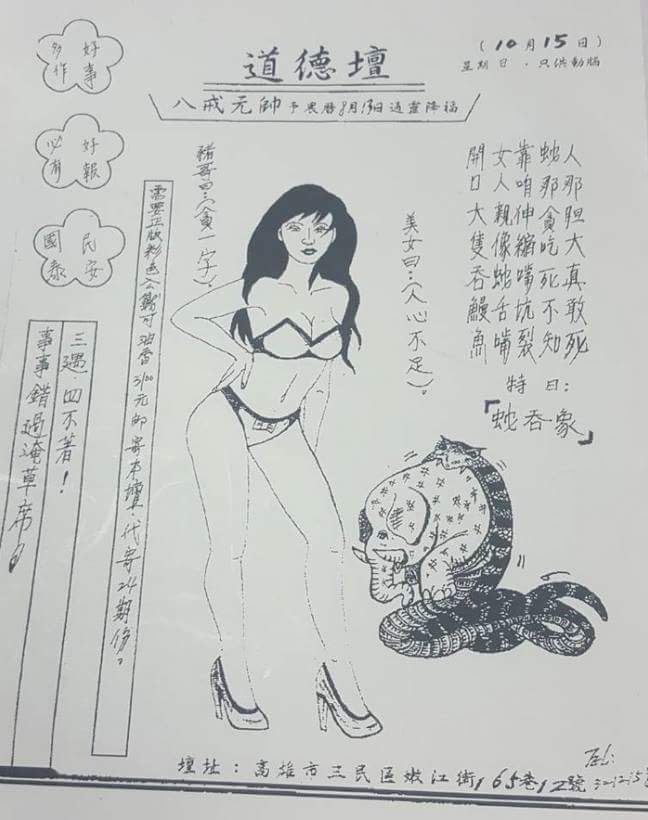 (10月15日)
星期日．只供動腦
道德壇
八戒元帥 予農曆8月 日通靈降福
好事
多作
好報
必有
民安
國泰
人那胆大真敢死
蛇那貪吃死不知
靠咱伸縮嘴坑裂
女人親像蛇舌嘴
開口大隻吞鰻魚
特曰：
「蛇吞象」
美女曰：(人心不足)。
豬哥曰：(貪一字)。
需要正版彩色公 可 3100元郵寄本壇代寄24期份。
三遇．四不著！
事事錯過淹草席！
壇址：高雄市三民區嫩江街165巷12號